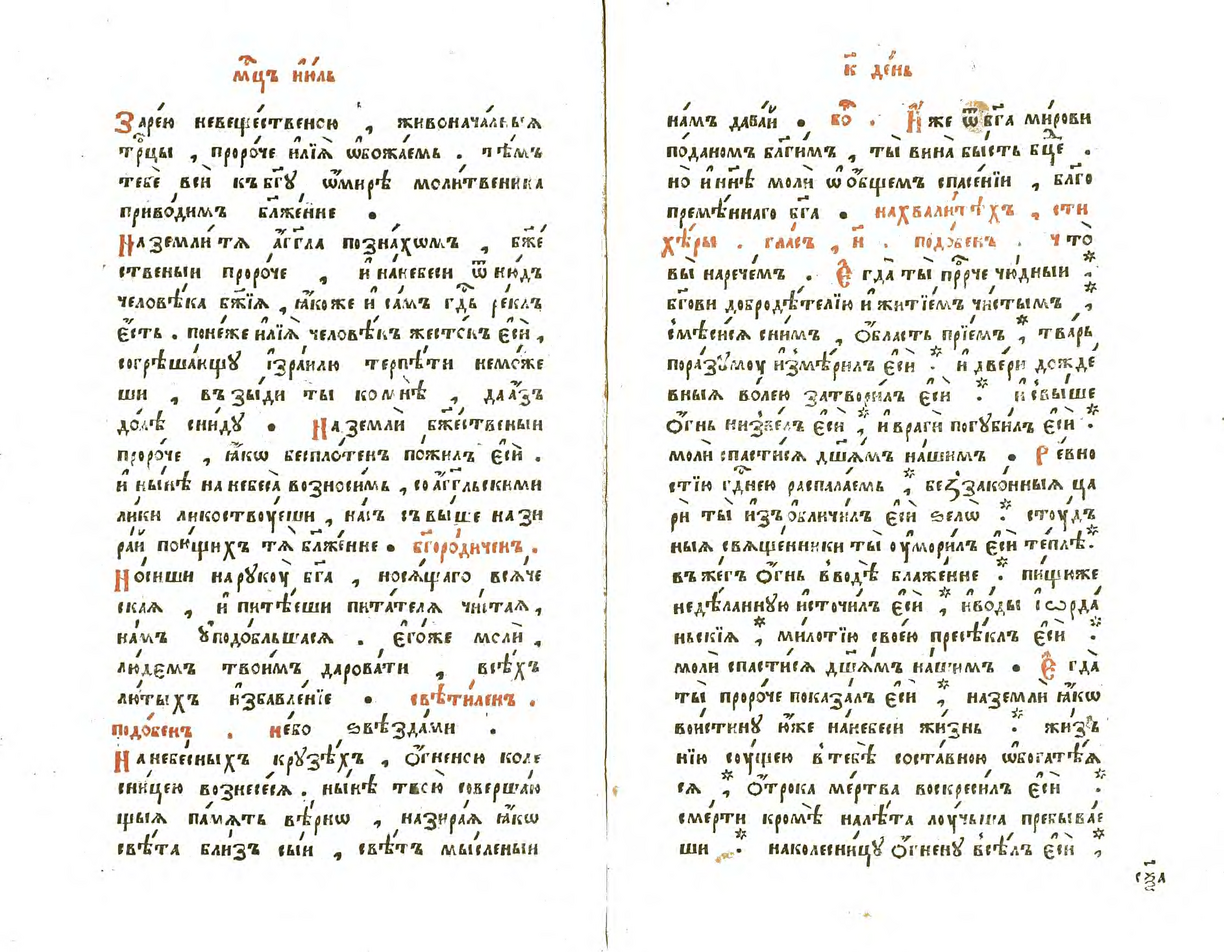 мⷭ҇цъ і҆ю́ль
Заре́ю невеще́ственою , живонача́льныѧ
трⷪ҇цы , проро́че и҆лїѧ̀ ѡ҆божа́емь . тѣ́мъ
тебѐ всѝ къ бг҃у ѿ ми́рѣ моли́твеника
приво́димъ блаже́нне •
На землѝ тѧ а҆́гг҃ла позна́хомъ , бж҃е
ственыи проро́че , и҆ на небесѝ ѿ ню́дъ
человѣ́ка бж҃їѧ , ꙗ҆́коже и҆ са́мъ гдⷭ҇ь ре́клъ
є҆́сть . поне́же и҆лїѧ̀ человѣ́къ жесто́къ є҆сѝ ,
согрѣша́ющу і҆зра́илю терпѣ́ти немо́же
ши , възы́ди ты ко мнѣ̀ , да а҆́зъ
до́лѣ сни́ду • На землѝ бж҃е́ственыи
проро́че , ꙗ҆́кѡ беспло́тенъ пожи́лъ є҆сѝ .
и҆ ны́нѣ на небеса̀ возноси́мь , со а҆́гг҃льскими
ли́ки ликоствꙋ́еши , на́съ съвы́ше нази
ра́й пою́щихъ тѧ̀ блаже́нне • бг҃оро́диченъ .
Но́сиши на рукоу̀ бг҃а , носѧ́щаго всѧ́че
скаѧ , и҆ пита́еши пита́телѧ чи́стаѧ ,
на́мъ ᲂу҆подо́бльшасѧ . є҆го́же молѝ ,
лю́демъ твои́мъ дарова́ти , всѣ́хъ
лю́тыхъ и҆збавле́нїе • свѣти́ленъ .
подо́бенъ . не́бо ѕвѣзда́ми .
На небе́сныхъ крузѣ́хъ , о҆́гненою коле
сни́цею вознесе́сѧ . ны́нѣ твою̀ соверша́ю
щыѧ па́мѧть вѣ́рнѡ , назира́ѧ ꙗ҆́кѡ
свѣ́та бли́зъ сы́и , свѣ́тъ мы́сленыи
к҃ де́нь
на́мъ дава́й • бо҃ . И҆́же ѿ бг҃а ми́рови
пода́номъ благи́мъ , ты̀ вина̀ бы́сть бцⷣе .
но̀ и҆ нн҃ѣ молѝ ѡ҆ о҆́бщемъ спасе́нїи , благо
преме́ннаго бг҃а • на хвали́техъ , сти
хѣ́ры . гла́съ , и҃ . подо́бенъ . что̀
вы̀ нарече́мъ . Є҆гда̀ ты̀ прⷪ҇рче чю́дныи *
бг҃ови доброде́телїю и҆ житїе́мъ чи́стымъ ,*
смѣси́сѧ сни́мъ , о҆́бласть прїе́мъ ,* тва́рь
по ра́зумоу и҆змѣ́рилъ є҆сѝ .* и҆ две́ри дожде
вныѧ во́лею затвори́лъ є҆сѝ .* и҆ свы́ше
о҆́гнь низве́лъ є҆сѝ ,* и҆ врагѝ погуби́лъ є҆сѝ .*
молѝ спасти́сѧ дш҃а́мъ на́шимъ • Ревно
стїю гдⷭ҇нею распала́емь ,* беззако́нныѧ ца
рѝ ты̀ и҆з̾ѡбличи́лъ є҆сѝ ѕело̀ .* сту́дъ
ныѧ свѧще́нники ты̀ оу҆мори́лъ є҆сѝ те́плѣ.*
въже́гъ о҆́гнь в водѣ̀ блаже́нне .* пи́щиже
недѣ́ланную и҆сточи́лъ є҆сѝ ,* и҆ во́ды і҆ѡрда́
ньскїѧ ,* ми́лотїю свое́ю пресѣ́клъ є҆сѝ .*
молѝ спасти́сѧ дш҃а́мъ на́шимъ • Є҆гда̀
ты̀ проро́че показа́лъ є҆сѝ ,* на землѝ ꙗ҆́кѡ
вои́стину ю҆́же на небесѝ жи́знь .* жи́зъ
нїю су́щею в тебѣ̀ соста́вною ѡ҆богатѣ́ѧ
сѧ ,* о҆́трока ме́ртва воскреси́лъ є҆сѝ .*
сме́рти кромѣ̀ на лѣ́та лу́чьша пребыва́е
ши .* на колесни́цу о҆́гнену всѣ́лъ є҆сѝ ,*